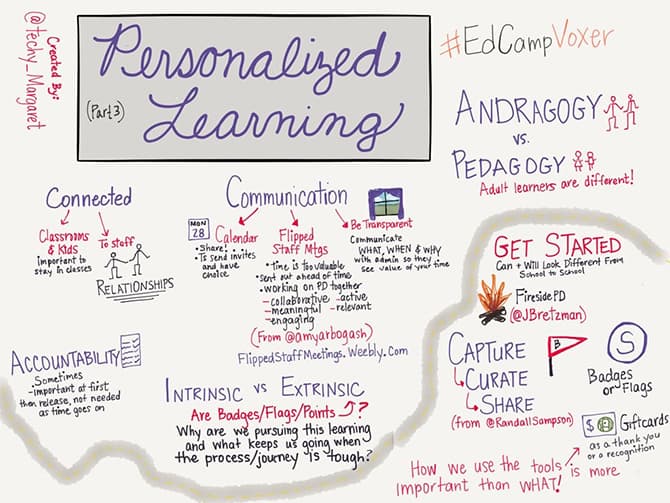 Created By:
@techy_Margaret
Personalized
(Part 3)
Learning
#EdCampVoxer
ANDRAGOGY
vs.
PEDAGOGY
Adult learners are different!
Connected
Classrooms
& Kids
important to
stay in classes
To staff
RELATIONSHIPS
Communication
MON
28
Calendar
• Share!
• To send invites
and have
choice.
Flipped
Staff Mtgs
• Time is too valuable
• sent out ahead of time
• working on PD together
- collaborative - active
- meaningful - relevant
- engaging
(From @amyarbogash)
FlippedStaffMeetings.Weebly.Com
Be Transparent
Communicate
WHAT, WHEN & WHY
with admin so they
see value of your time
GET STARTED
Can + Will Look Different From
School to School
Fireside PD
(@JBretzman)
ACCOUNTABILITY
- Sometimes
- important at first
then release, not needed
as time goes on
INTRINSIC vs EXTRINSIC
Are Badges/Flags/Points ?
Why are we pursuing this learning
and what keeps us going when
the process/journey is tough?
CAPTURE
CURATE
SHARE
(from @RandallSampson)
B
S
Badges
or Flags
$
Giftcards
as a thank you
or a recognition
How we use the tools is more
important than WHAT!